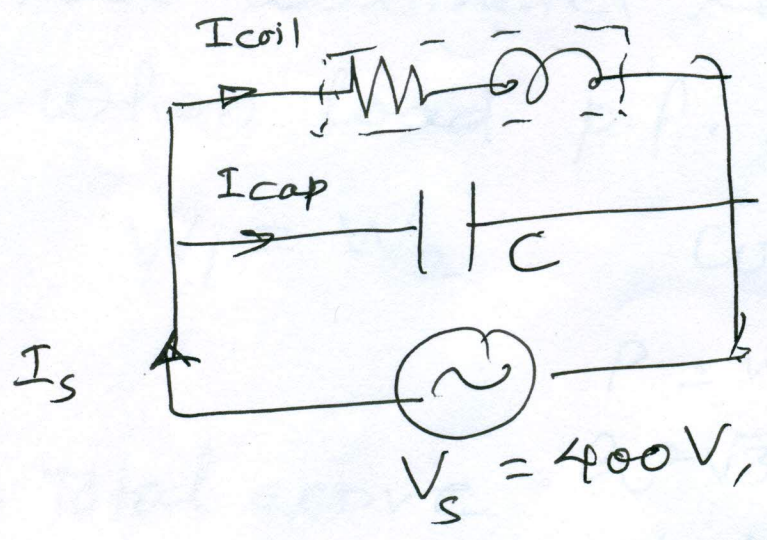 Icoil
Icap
C
Is
Vs = 400V,